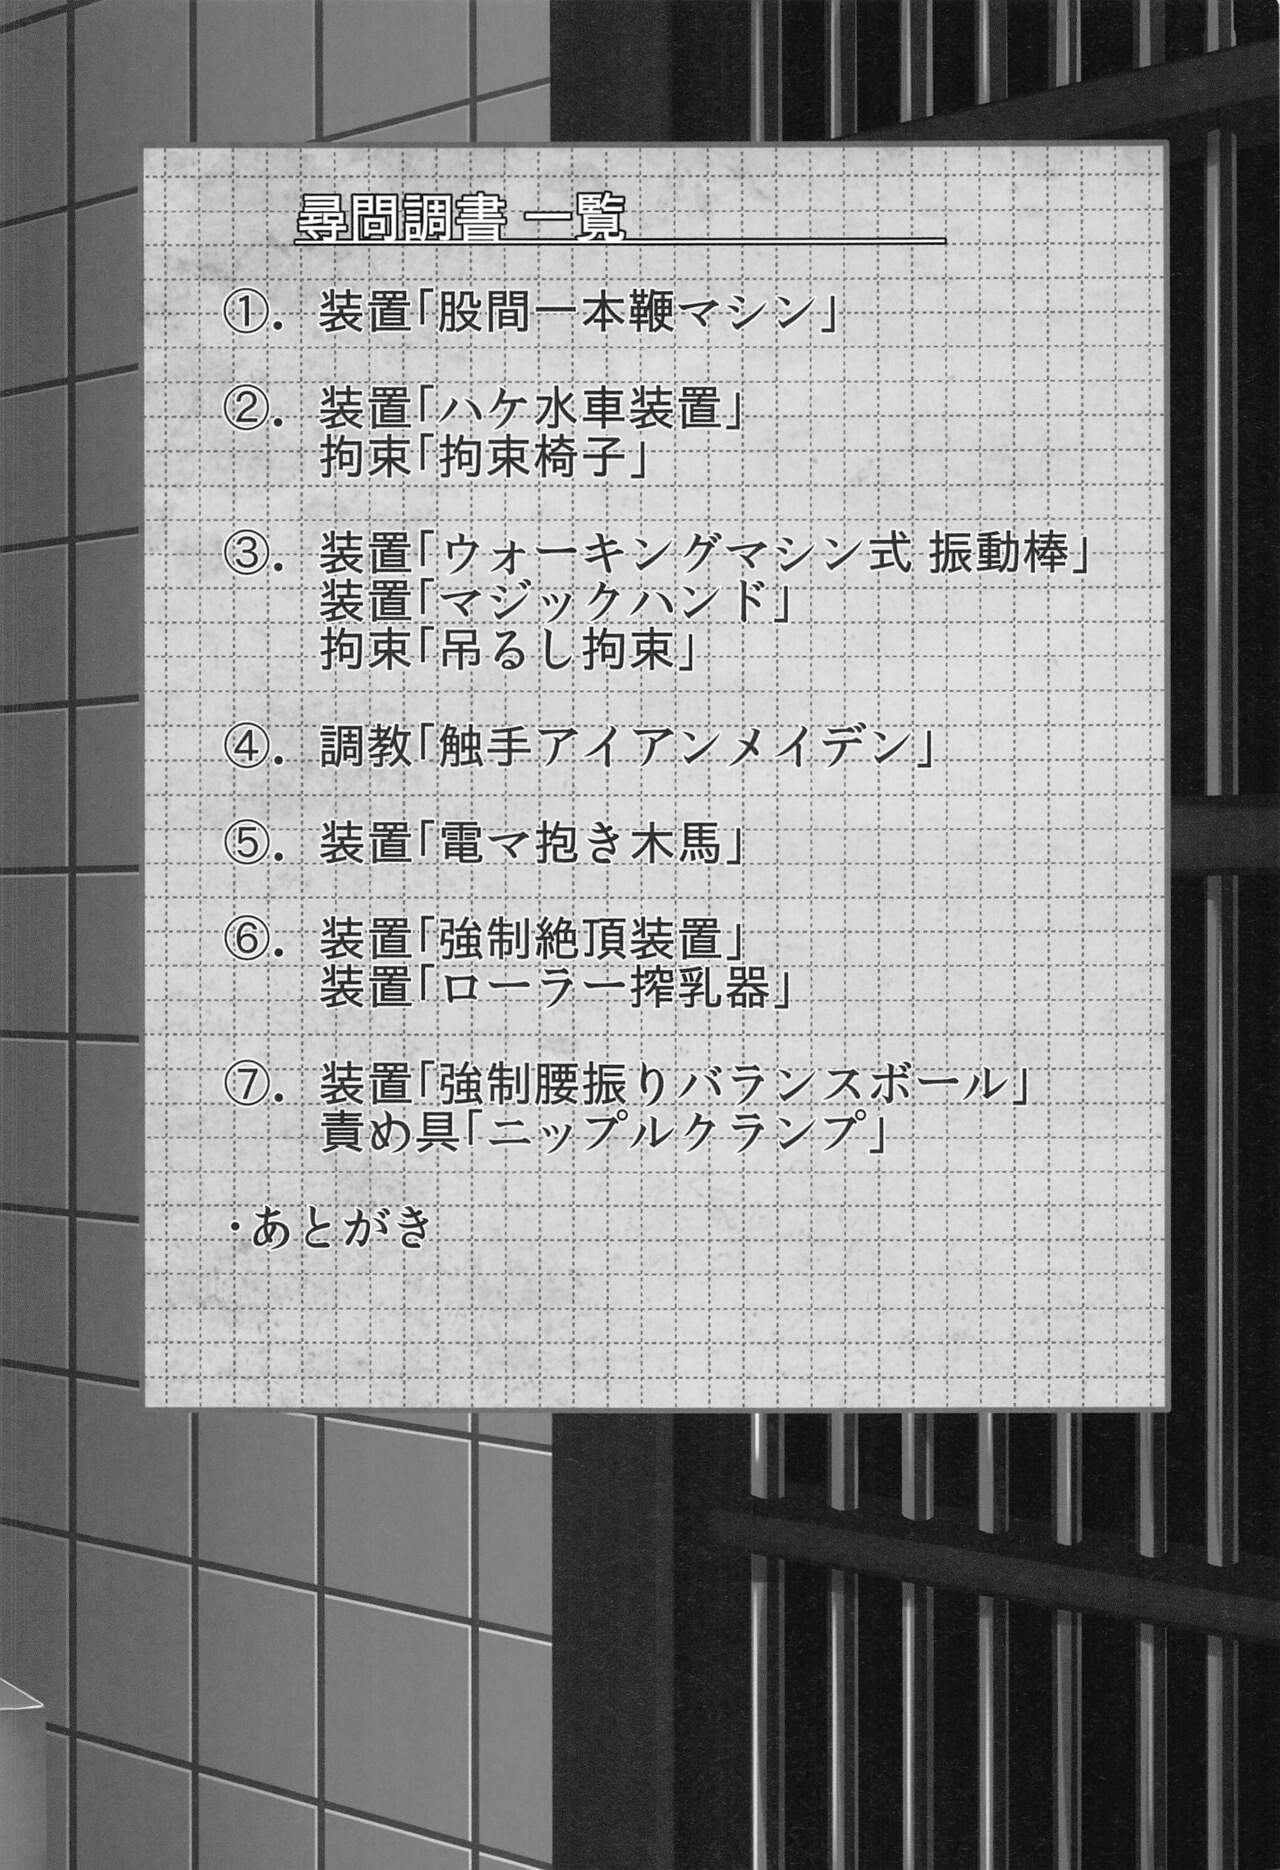 尋問調書 一覧
①. 装置「股間一本鞭マシン」
②. 装置「ハケ水車装置」
拘束「拘束椅子」
③. 装置「ウォーキングマシン式 振動棒」
装置「マジックハンド」
拘束「吊るし拘束」
④. 調教「触手アイアンメイデン」
⑤. 装置「電マ抱き木馬」
⑥. 装置「強制絶頂装置」
装置「ローラー搾乳器」
⑦. 装置「強制腰振りバランスボール」
責め具「ニップルクランプ」
・あとがき